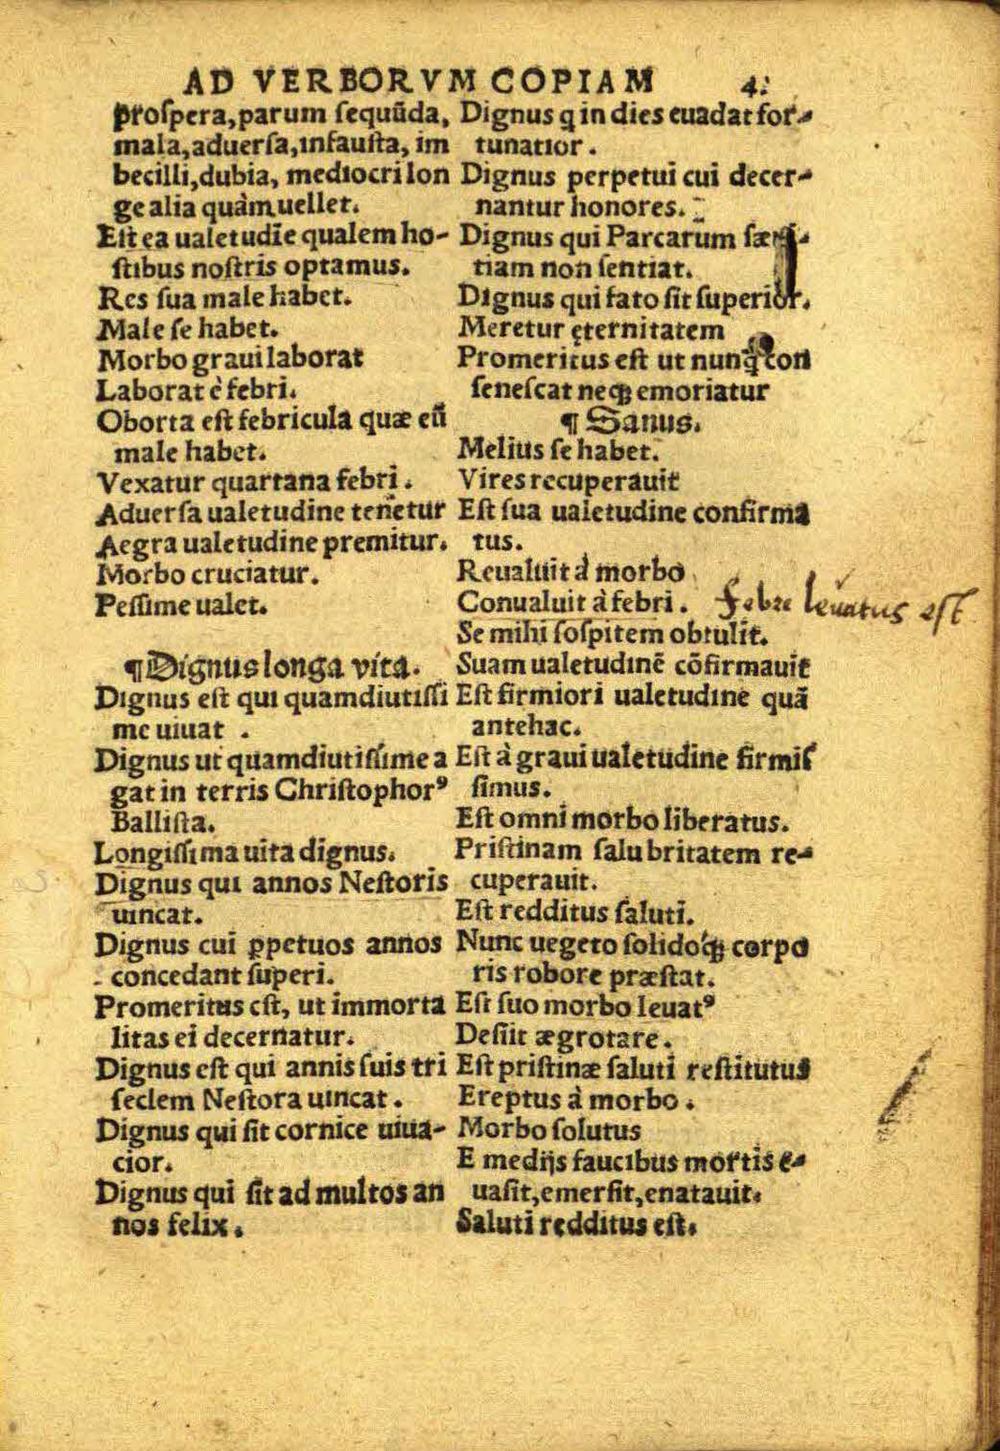 AD VERBORVM COPIAM 4.
proſpera, parum ſequūda,
mala, aduerſa, infauſta, im
becilli, dubia, mediocri lon
ge alia quàm uellet.
Eſt ea ualetudīe qualem ho-
ſtibus noſtris optamus.
Res ſua male habet.
Male ſe habet.
Morbo graui laborat
Laborat è febri.
Oborta eſt febricula quæ eū
male habet.
Vexatur quartana febri.
Aduerſa ualetudine tenetur
Aegra ualetudine premitur.
Morbo cruciatur.
Peſſime ualet.
¶Dignus longa vita.
Dignus eſt qui quamdiutiſſi
me uiuat.
Dignus ut quamdiutiſſime a
gat in terris Chriſtophorꝰ
Balliſta.
Longiſſima uita dignus.
Dignus qui annos Neſtoris
uincat.
Dignus cui ꝑpetuos annos
concedant ſuperi.
Promeritus eſt, ut immorta
litas ei decernatur.
Dignus eſt qui annis ſuis tri
ſeclem Neſtora uincat.
Dignus qui ſit cornice uiua-
cior.
Dignus qui ſit ad multos an
nos felix.
Dignus q in dies euadat for-
tunatior.
Dignus perpetui cui decer-
nantur honores.
Dignus qui Parcarum
tiam non ſentiat.
Dignus qui fato ſit ſuperior.
Meretur ęternitatem
Promeritus eſt ut nunq̄
ſeneſcat neqꝫ emoriatur
¶ Sanus.
Melius ſe habet.
Vires recuperauit
Eſt ſua ualetudine confirma
tus.
Reualuit à morbo
Conualuit à febri. febre leuatus eſt
Se mihi ſoſpitem obtulit.
Suam ualetudinē cōfirmauit
Eſt firmiori ualetudine quā
antehac.
Eſt à graui ualetudine firmiſ
ſimus.
Eſt omni morbo liberatus.
Priſtinam ſalubritatem re-
cuperauit.
Eſt redditus ſaluti.
Nunc uegeto ſolidoqꝫ corpo
ris robore præſtat.
Eſt ſuo morbo leuatꝰ
Deſiit ægrotare.
Eſt priſtinæ ſaluti reſtitutus
Ereptus à morbo.
Morbo ſolutus
E medijs faucibus mortis e-
uaſit, emerſit, enatauit.
Saluti redditus eſt.